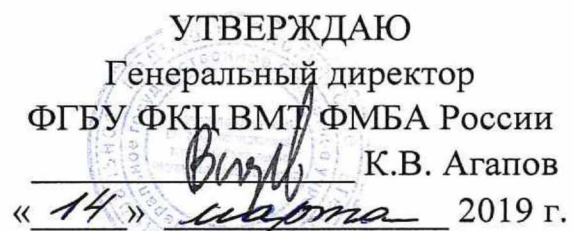 УТВЕРЖДАЮ
Генеральный директор
ФГБУ ФКЦ ВМТ ФМБА России
К.В. Агапов
« 14 » марта 2019 г.